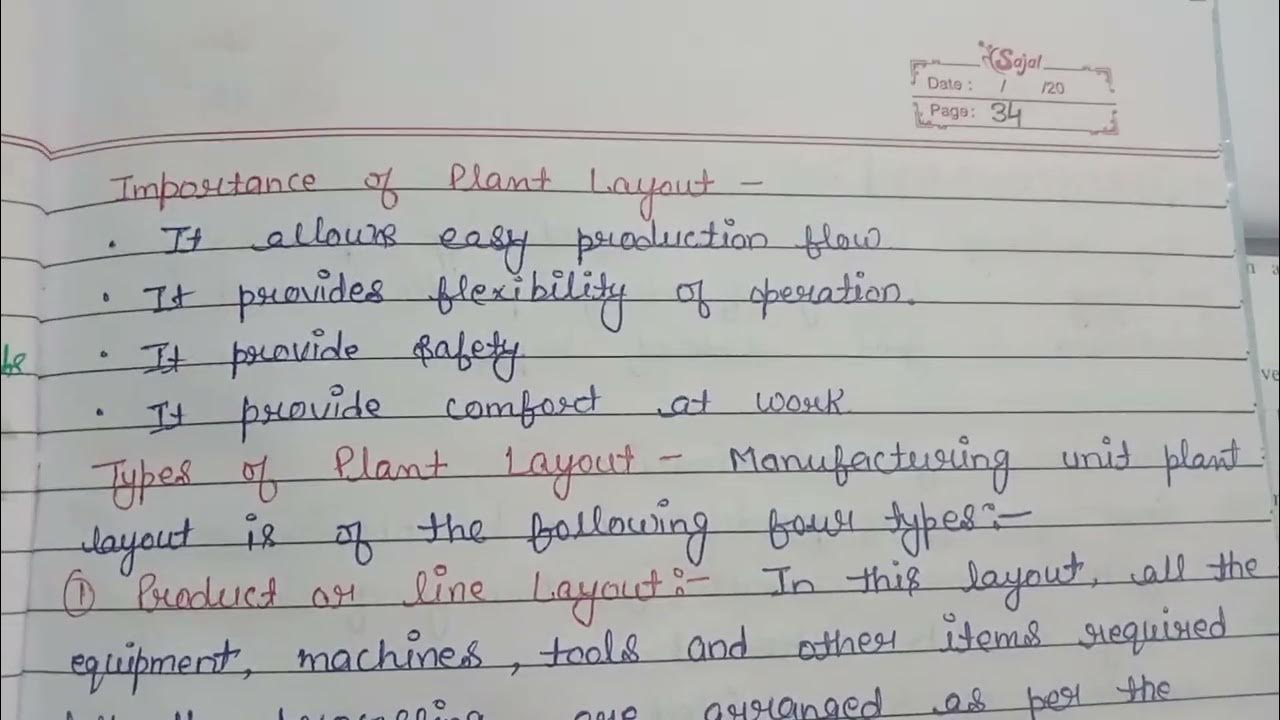 Sajal
Date: / /20
Page: 34
Importance of Plant Layout -
• It allows easy production flow
• It provides flexibility of operation.
• It provide safety
• It provide comfort at work
Types of Plant Layout - Manufacturing unit plant
layout is of the following four types:-
① Product or line Layout:- In this layout, all the
equipment, machines, tools and other items required
are arranged as per the